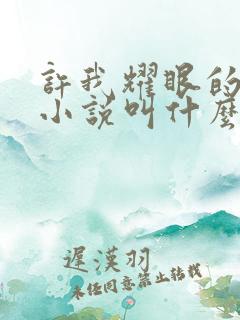 許我耀眼的
小説叫什麼
遲漢羽
未經同意禁止轉載